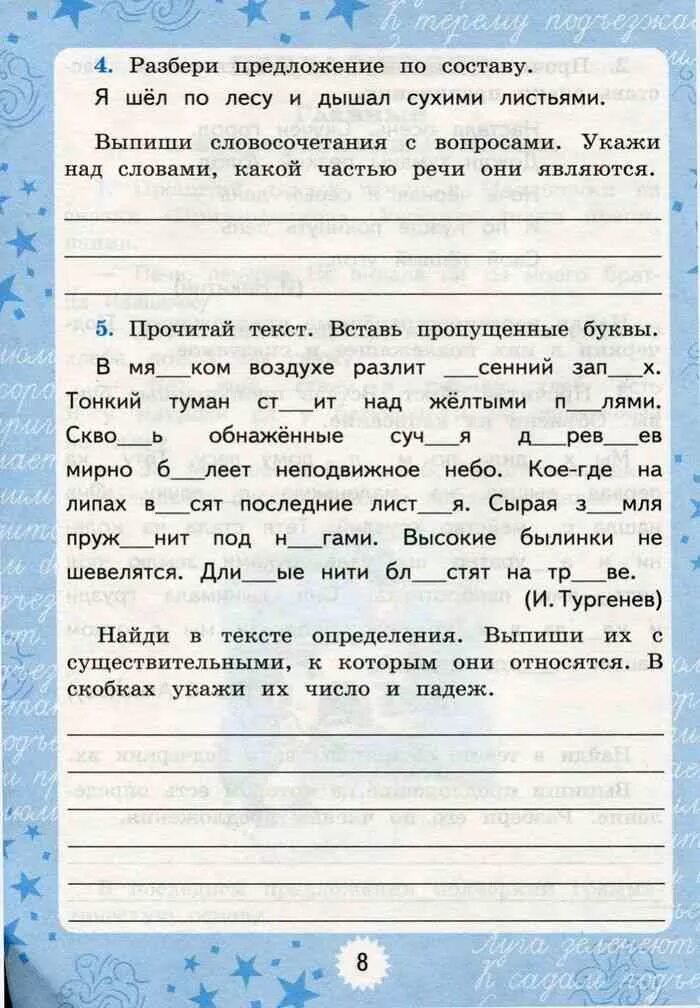 К терему подъезжа
4. Разбери предложение по составу.
Я шёл по лесу и дышал сухими листьями.
Выпиши словосочетания с вопросами. Укажи
над словами, какой частью речи они являются.
5. Прочитай текст. Вставь пропущенные буквы.
В мя___ком воздухе разлит ___сенний зап___х.
Тонкий туман ст___ит над жёлтыми п___лями.
Скво___ь обнажённые суч___я д___рев___ев
мирно б___леет неподвижное небо. Кое-где на
липах в___сят последние лист___я. Сырая з___мля
пруж___нит под н___гами. Высокие былинки не
шевелятся. Дли___ые нити бл___стят на тр___ве.
(И. Тургенев)
Найди в тексте определения. Выпиши их с
существительными, к которым они относятся. В
скобках укажи их число и падеж.
Луга зеленеют
К садам подъ
8